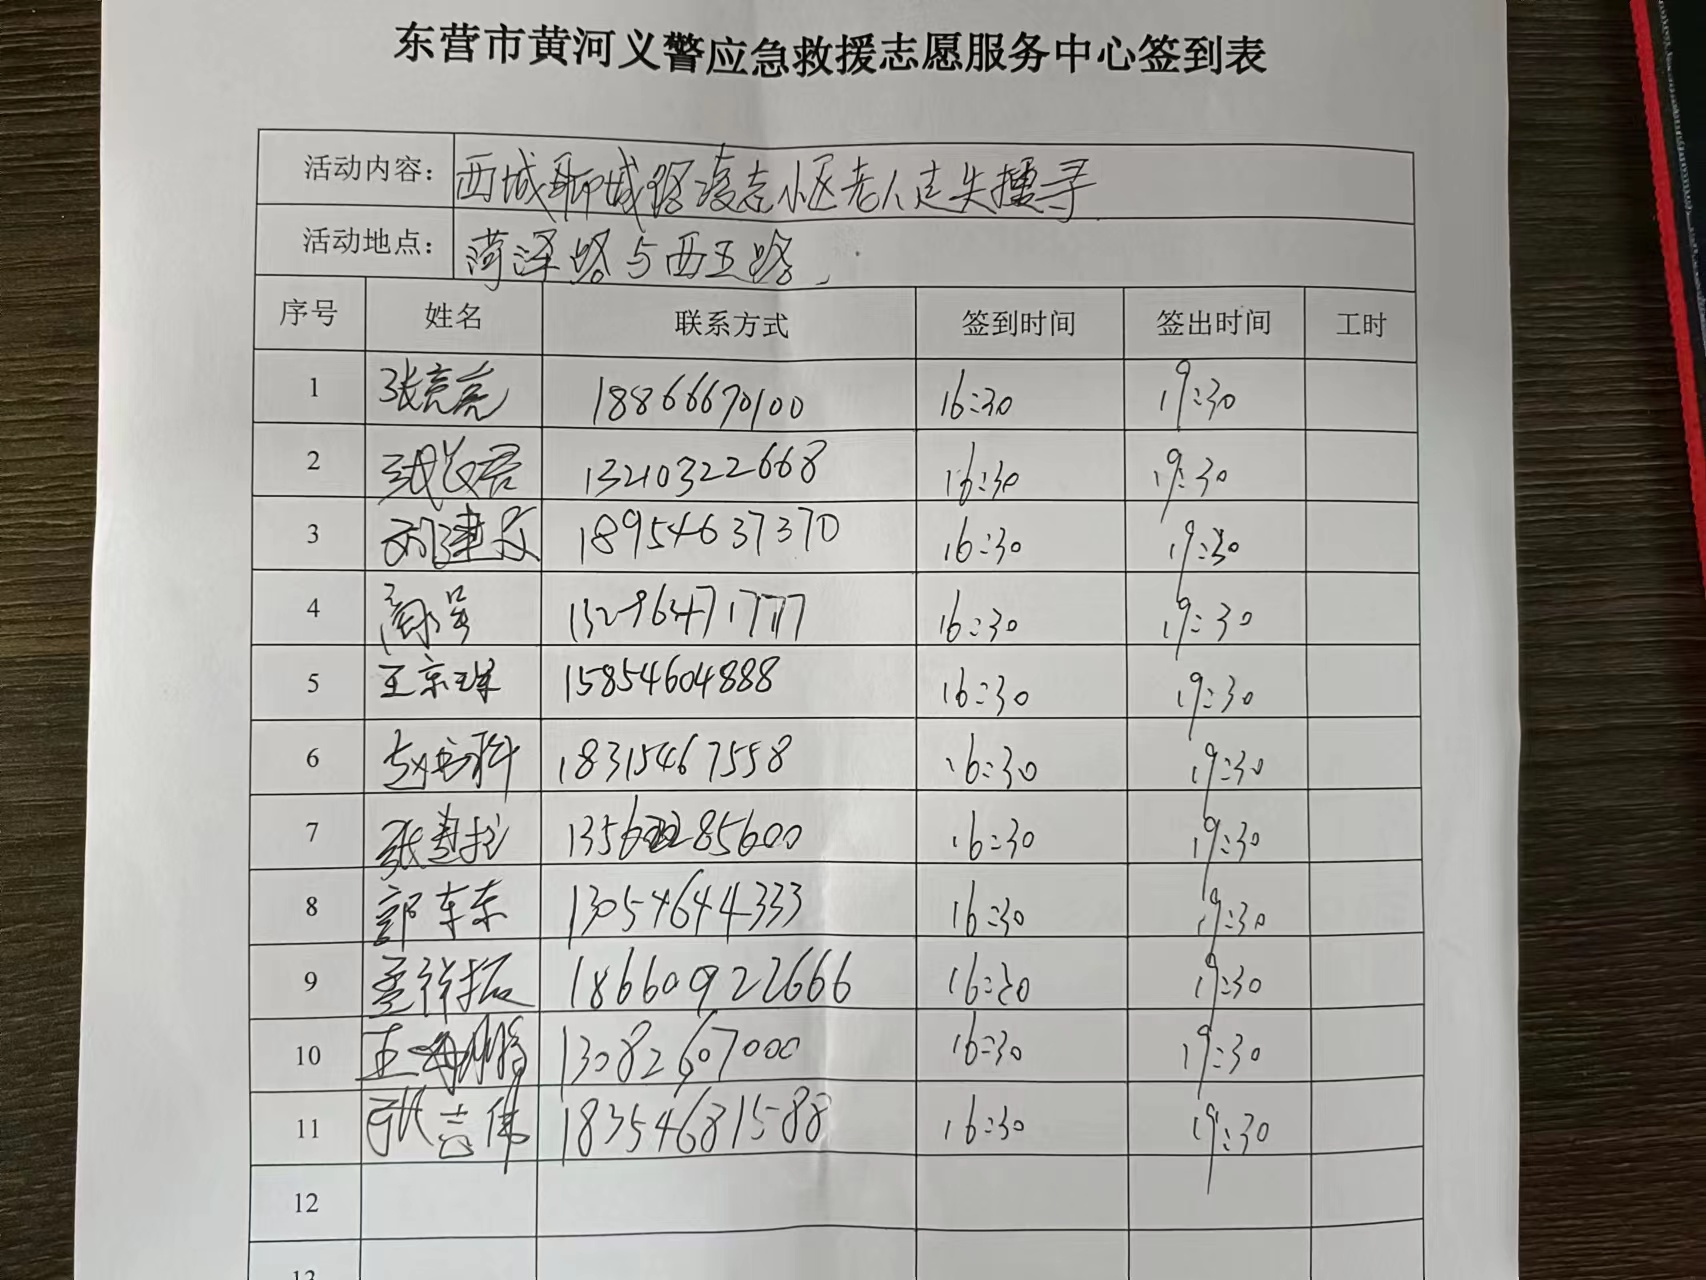 东营市黄河义警应急救援志愿服务中心签到表
活动内容: 西城聊城路凌志小区老人走失搜寻
活动地点: 菏泽路与西五路
序号 姓名 联系方式 签到时间 签出时间 工时
1 张亮亮 18866670100 16:30 19:30
2 13210322668 16:30 19:30
3 18954637370 16:30 19:30
4 13296471777 16:30 19:30
5 15854604888 16:30 19:30
6 18315467558 16:30 19:30
7 16:30 19:30
8 郭东东 13054644333 16:30 19:30
9 18660922666 16:30 19:30
10 13082607000 16:30 19:30
11 张吉伟 18354681588 16:30 19:30
12
13